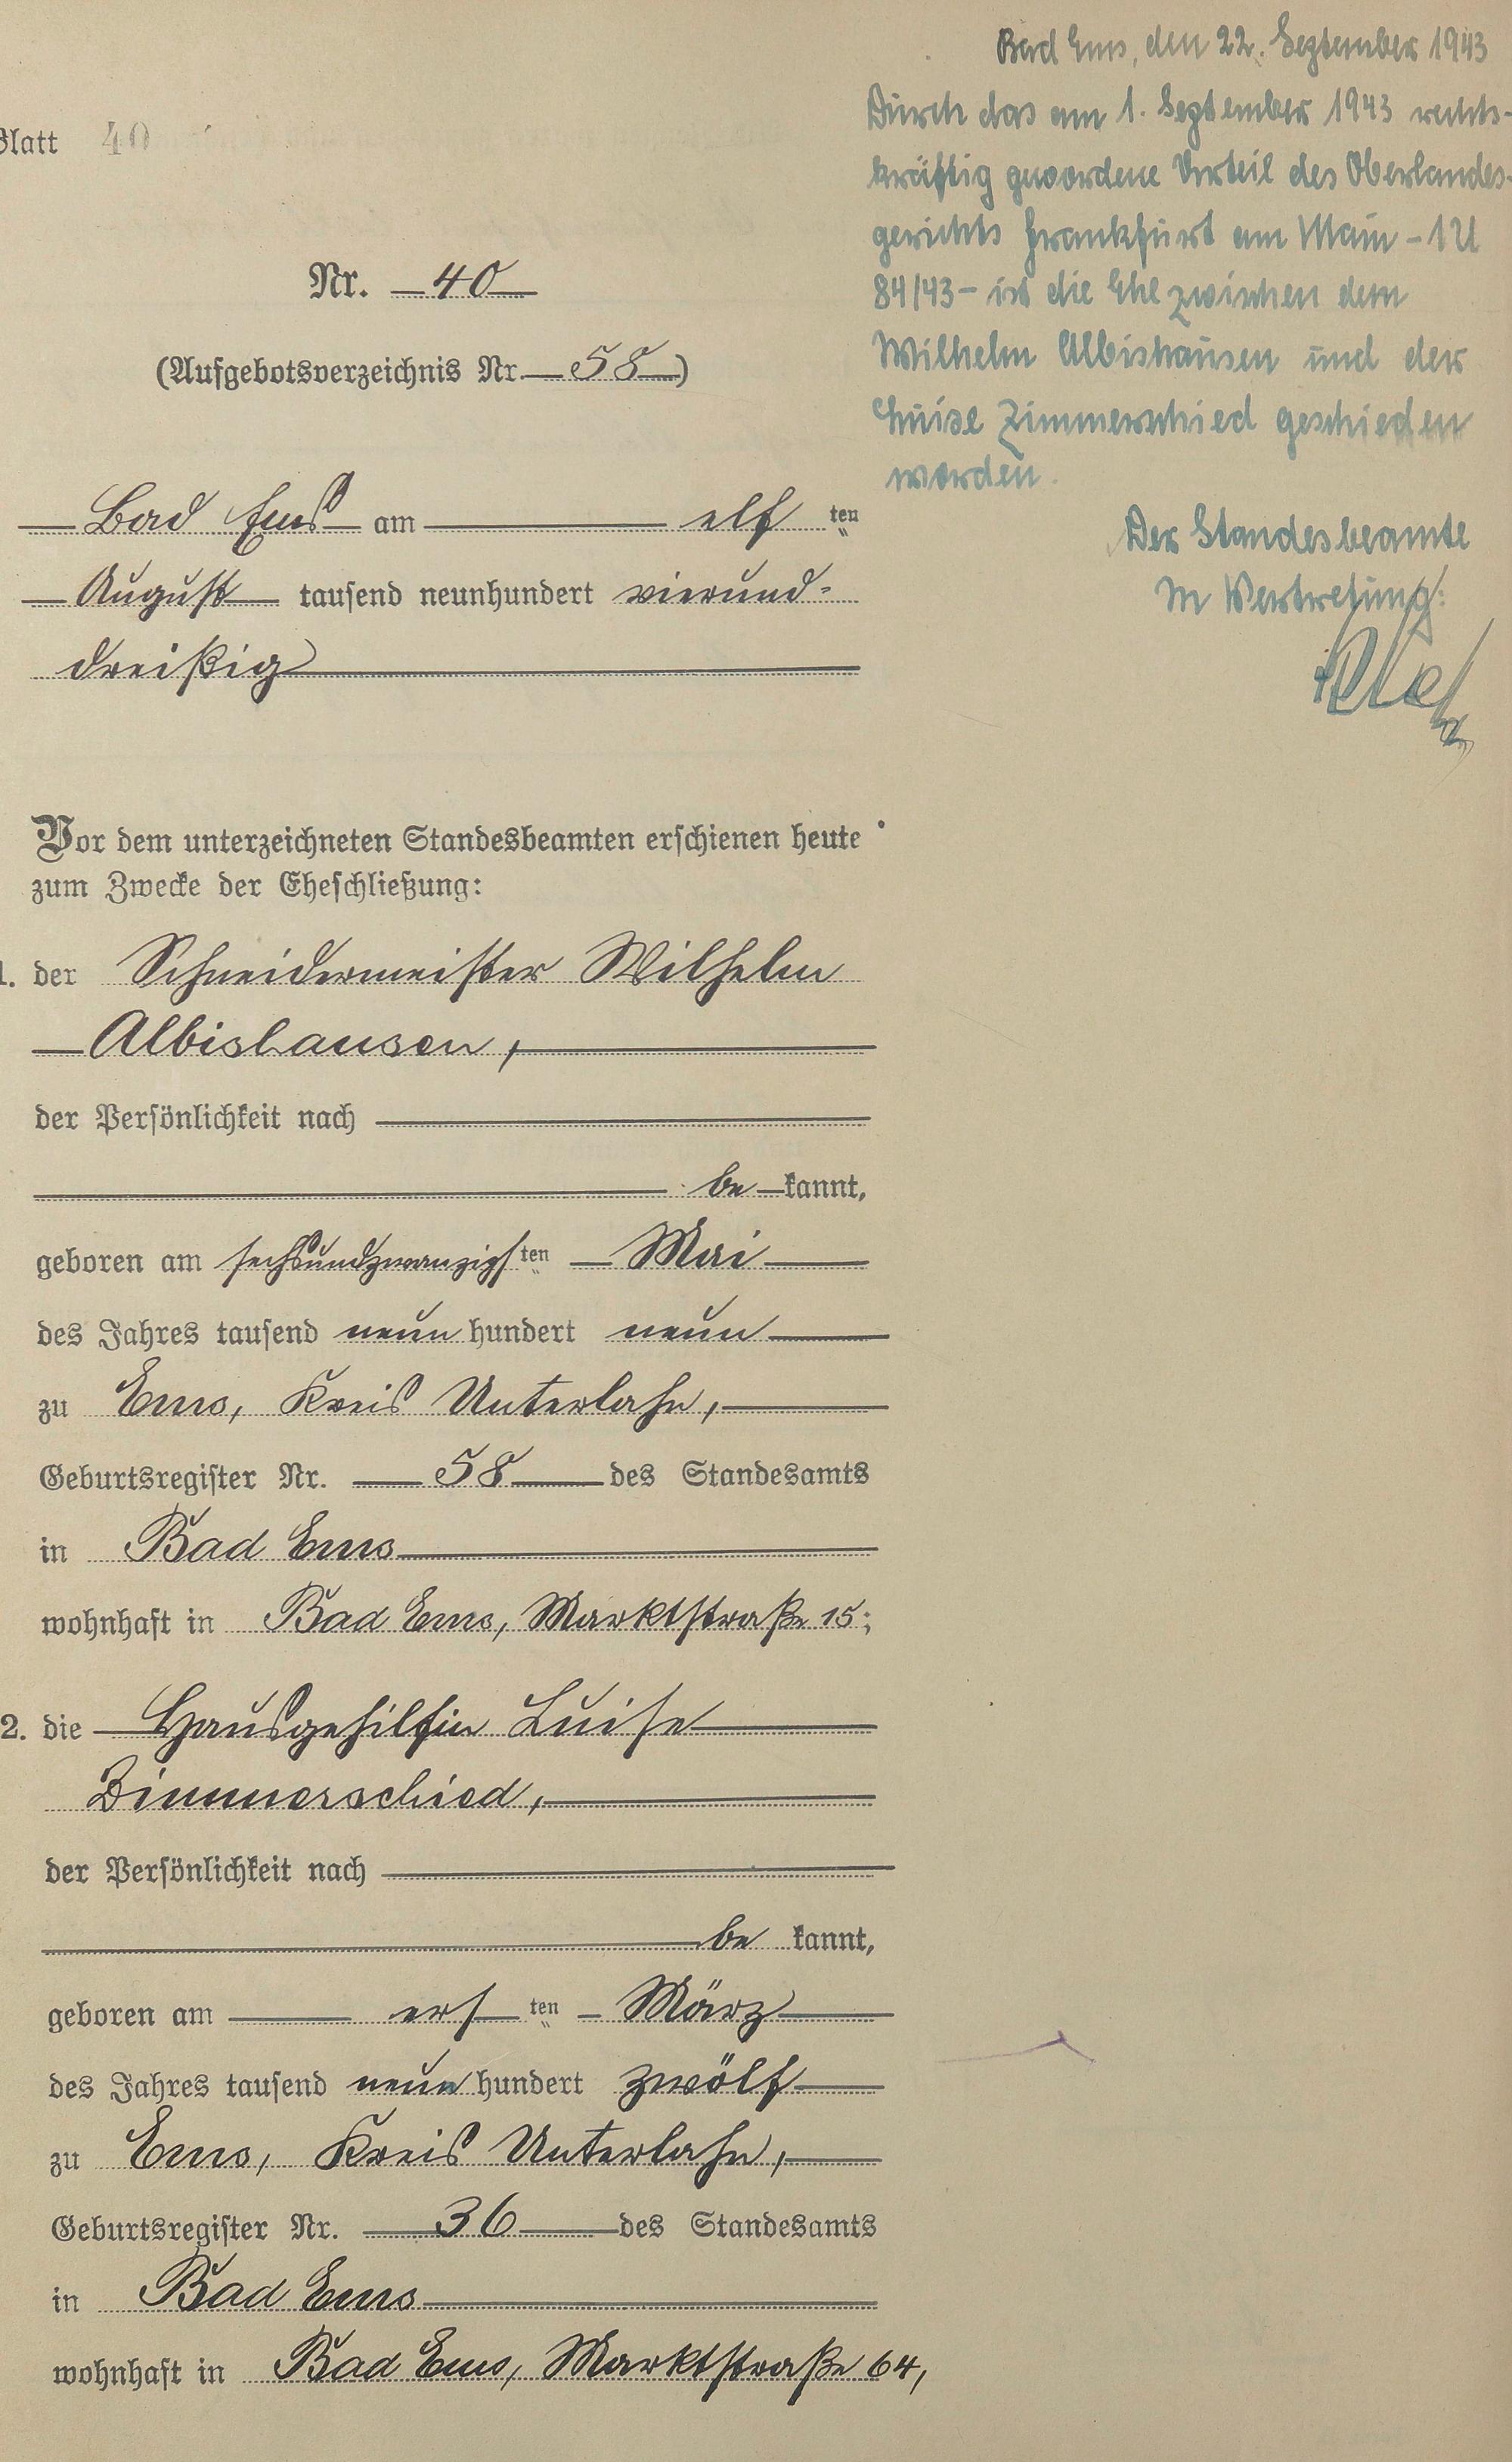 Blatt 40
Nr. 40
(Aufgebotsverzeichnis Nr. 58)
Bad Ems am elf ten
August tausend neunhundert vierund-
dreißig
Vor dem unterzeichneten Standesbeamten erschienen heute
zum Zwecke der Eheschließung:
1. der Schneidermeister Wilhelm
Albishausen,
der Persönlichkeit nach
be kannt,
geboren am sechsundzwanzigsten Mai
des Jahres tausend neun hundert neun
zu Ems, Kreis Unterlahn,
Geburtsregister Nr. 58 des Standesamts
in Bad Ems
wohnhaft in Bad Ems, Marktstraße 15;
2. die Hausgehilfin Luise
Zimmerschied,
der Persönlichkeit nach
be kannt,
geboren am ersten März
des Jahres tausend neun hundert zwölf
zu Ems, Kreis Unterlahn,
Geburtsregister Nr. 36 des Standesamts
in Bad Ems
wohnhaft in Bad Ems, Marktstraße 64,
Bad Ems, den 22. September 1943
Durch das am 1. September 1943 rechts-
kräftig gewordene Urteil des Oberlandes-
gerichts Frankfurt am Main - 1 U
84/43 - ist die Ehe zwischen dem
Wilhelm Albishausen und der
Luise Zimmerschied geschieden
worden.
Der Standesbeamte
In Vertretung: